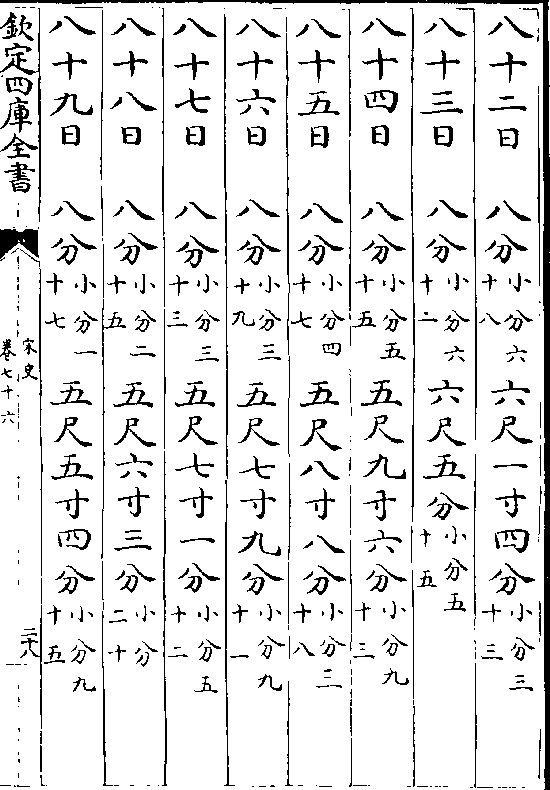 八十二日 八分小分六十八 六尺一寸四分小分三十三
八十三日 八分小分六十二 六尺五分小分五十五
八十四日 八分小分五十五 五尺九寸六分小分九十三
八十五日 八分小分四十七 五尺八寸八分小分三十八
八十六日 八分小分三十九 五尺七寸九分小分九十一
八十七日 八分小分三十三 五尺七寸一分小分五十二
八十八日 八分小分二十五 五尺六寸三分小分二十
八十九日 八分小分一十七 五尺五寸四分小分九十五
欽定四庫全書
宋史
卷七十六
二十八